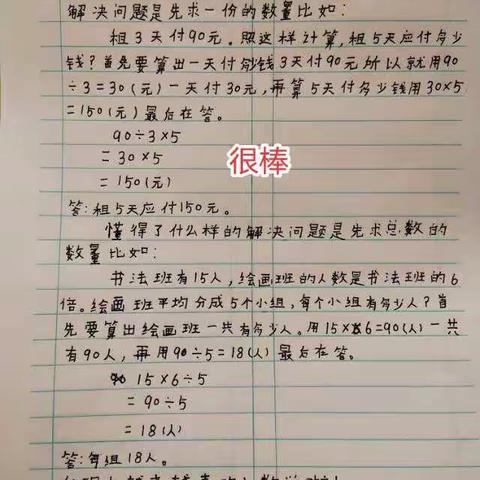 解决问题是先求一份的数量比如:
租3天付90元。照这样计算,租5天应付多少
钱?首先要算出一天付多少钱3天付90元所以就用90
÷3=30(元)一天付30元,再算5天付多少钱用30×5
=150(元)最后在答。
90÷3×5
=30×5
=150(元)
很棒
答:租5天应付150元。
懂得了什么样的解决问题是先求总数的
数量比如:
书法班有15人,绘画班的人数是书法班的6
倍。绘画班平均分成5个小组,每个小组有多少人?首
先要算出绘画班一共有多少人。用15×6=90(人)一共
有90人,再用90÷5=18(人)最后在答。
15×6÷5
=90÷5
=18(人)
答:每组18人。